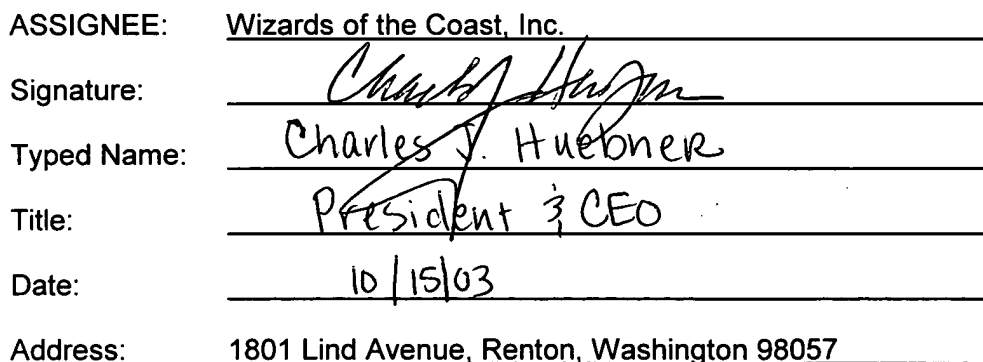 ASSIGNEE: Wizards of the Coast, Inc.
Signature: Charles J. Huebner
Typed Name: Charles J. Huebner
Title: President & CEO
Date: 10/15/03
Address: 1801 Lind Avenue, Renton, Washington 98057